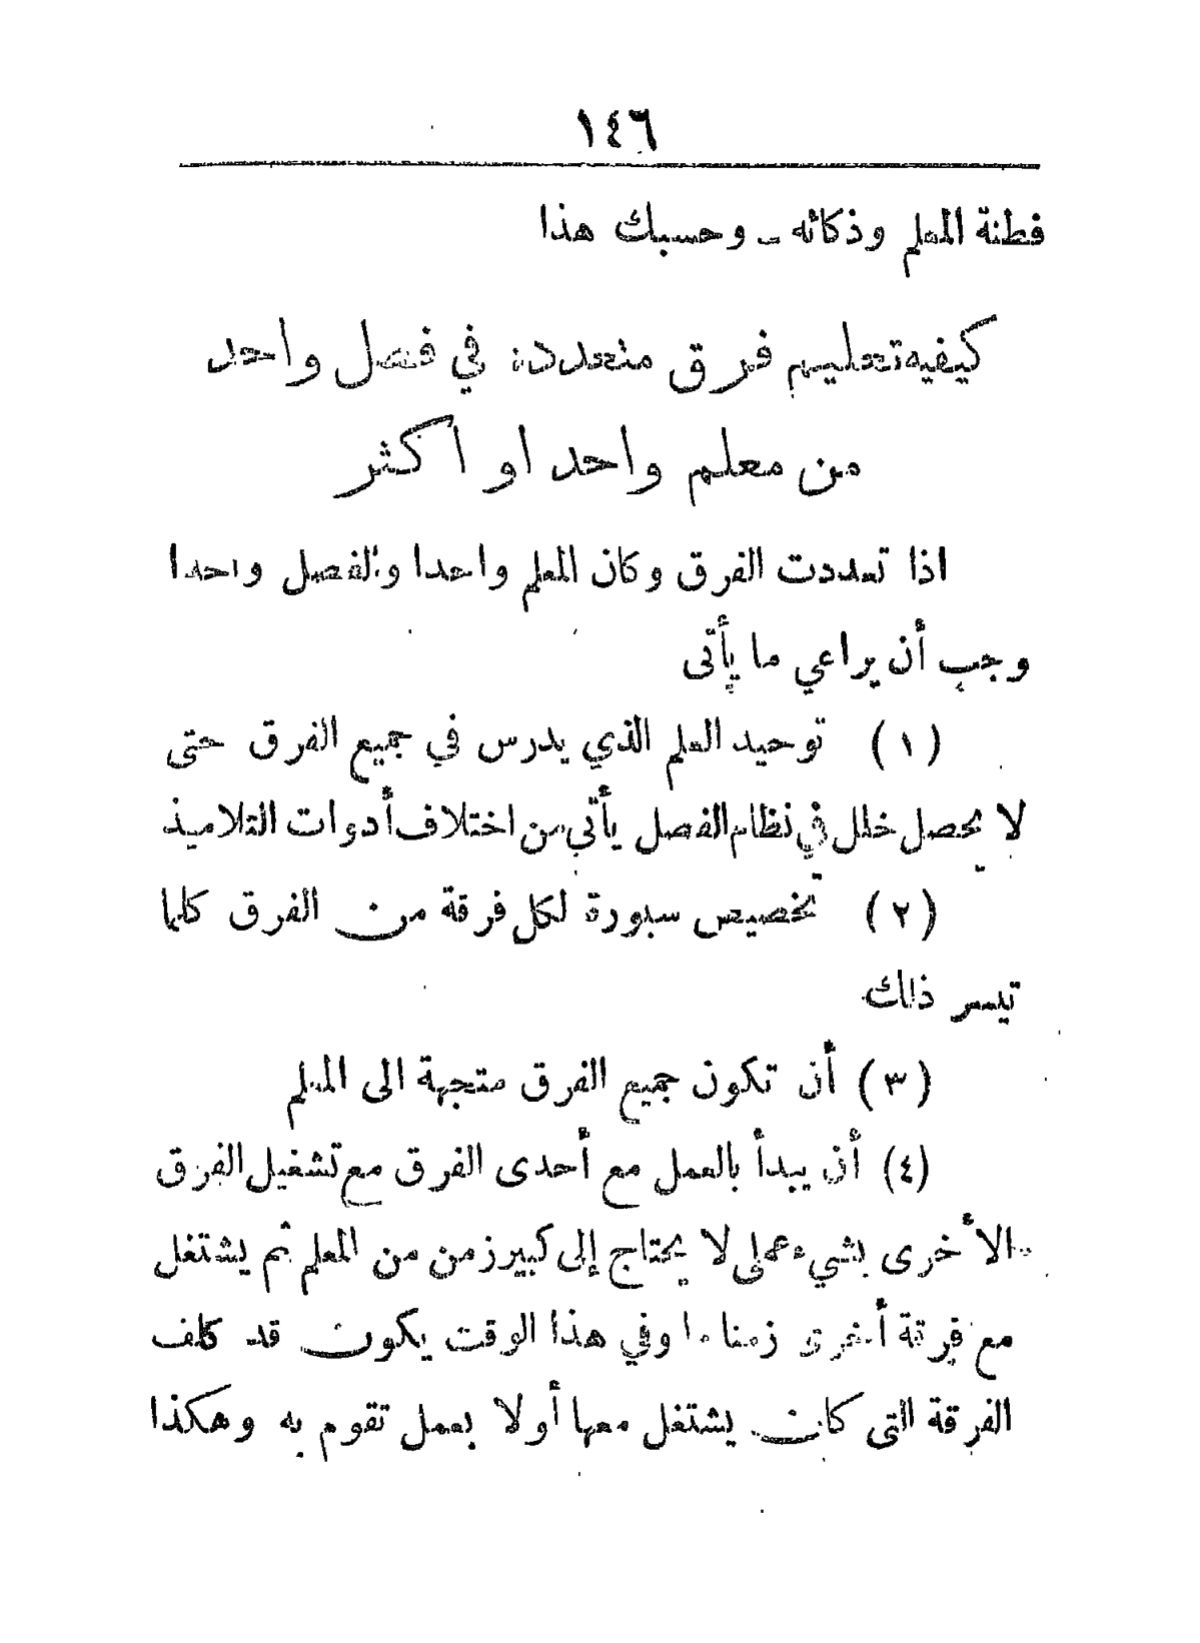 ١٤٦
فطنة المعلم وذكائه ـ وحسبك هذا
كيفيه تعليم فرق متعدده في فصل واحد
من معلم واحد او اكثر
اذا تعددت الفرق وكان المعلم واحدا والفصل واحدا
وجب أن يراعي ما يأتى
(١) توحيد العلم الذي يدرس في جميع الفرق حتى
لا يحصل خلل في نظام الفصل يأتي من اختلاف أدوات التلاميذ
(٢) تخصيص سبورة لكل فرقة من الفرق كلما
تيسر ذلك
(٣) أن تكون جميع الفرق متجهة الى المعلم
(٤) أن يبدأ بالعمل مع أحدى الفرق مع تشغيل الفرق
الأخرى بشيء عملى لا يحتاج إلى كبير زمن من المعلم ثم يشتغل
مع فرقة أخرى زمنا ما وفي هذا الوقت يكون قد كلف
الفرقة التى كان يشتغل معها أولا بعمل تقوم به وهكذا